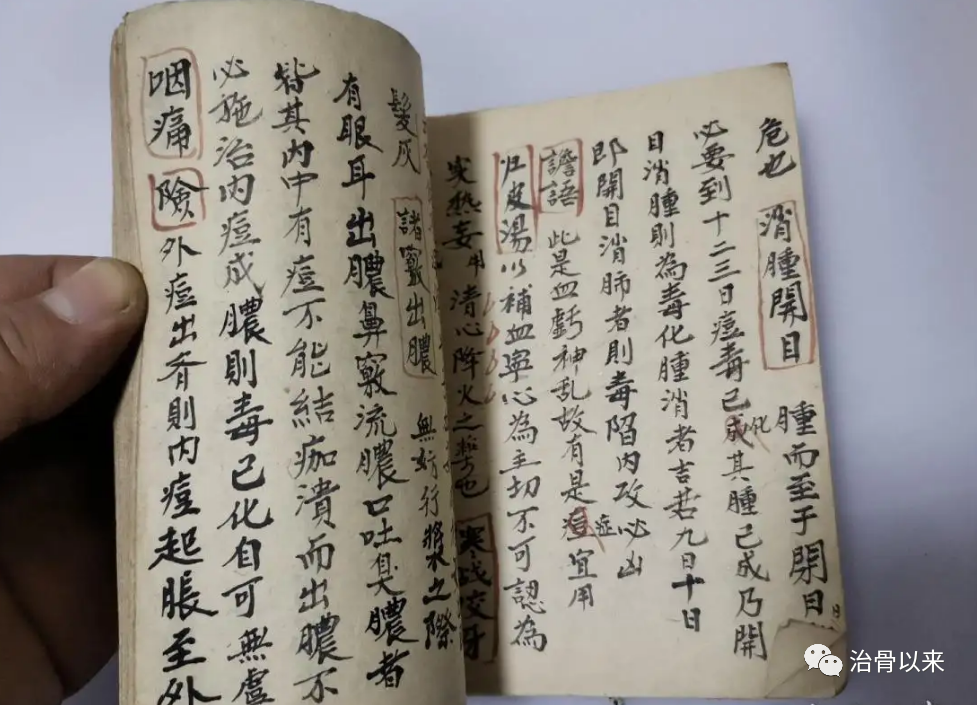 危也 消腫開目 腫而至于閉目
必要到十二三日痘毒已成化其腫已成乃開
目消腫則為毒化腫消者吉若九日十日
即開目消肺者則毒陷内攻必凶
譫語 此是血虧神乱故有是痘症宜用
归皮湯以補血寧心為主切不可認為
热妄用清心降火之藥也 寒战交牙
髮灰 諸竅出膿 無妨行漿之際
有眼耳出膿鼻竅流膿口吐臭膿者
皆其内中有痘不能結痂潰而出膿不
必施治内痘成膿則毒已化自可無慮
咽痛 險 外痘出斉則内痘起脹至外
治骨以来